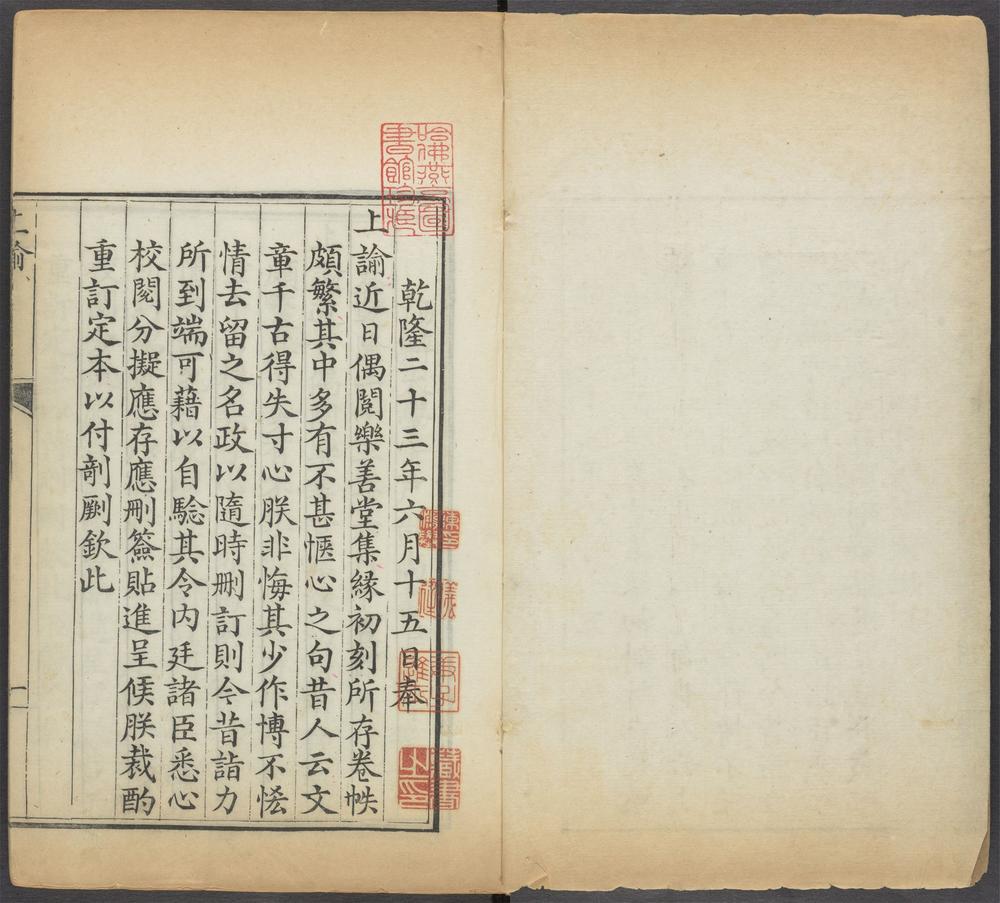 乾隆二十三年六月十五日奉
上諭近日偶閱樂善堂集緣初刻所存卷帙
頗繁其中多有不甚愜心之句昔人云文
章千古得失寸心朕非悔其少作博不恡
情去留之名政以隨時刪訂則今昔詣力
所到端可藉以自驗其令內廷諸臣悉心
校閱分擬應存應刪簽貼進呈候朕裁酌
重訂定本以付剞劂欽此
上諭
一
哈佛燕京圖
書館珍藏
藏書
之印